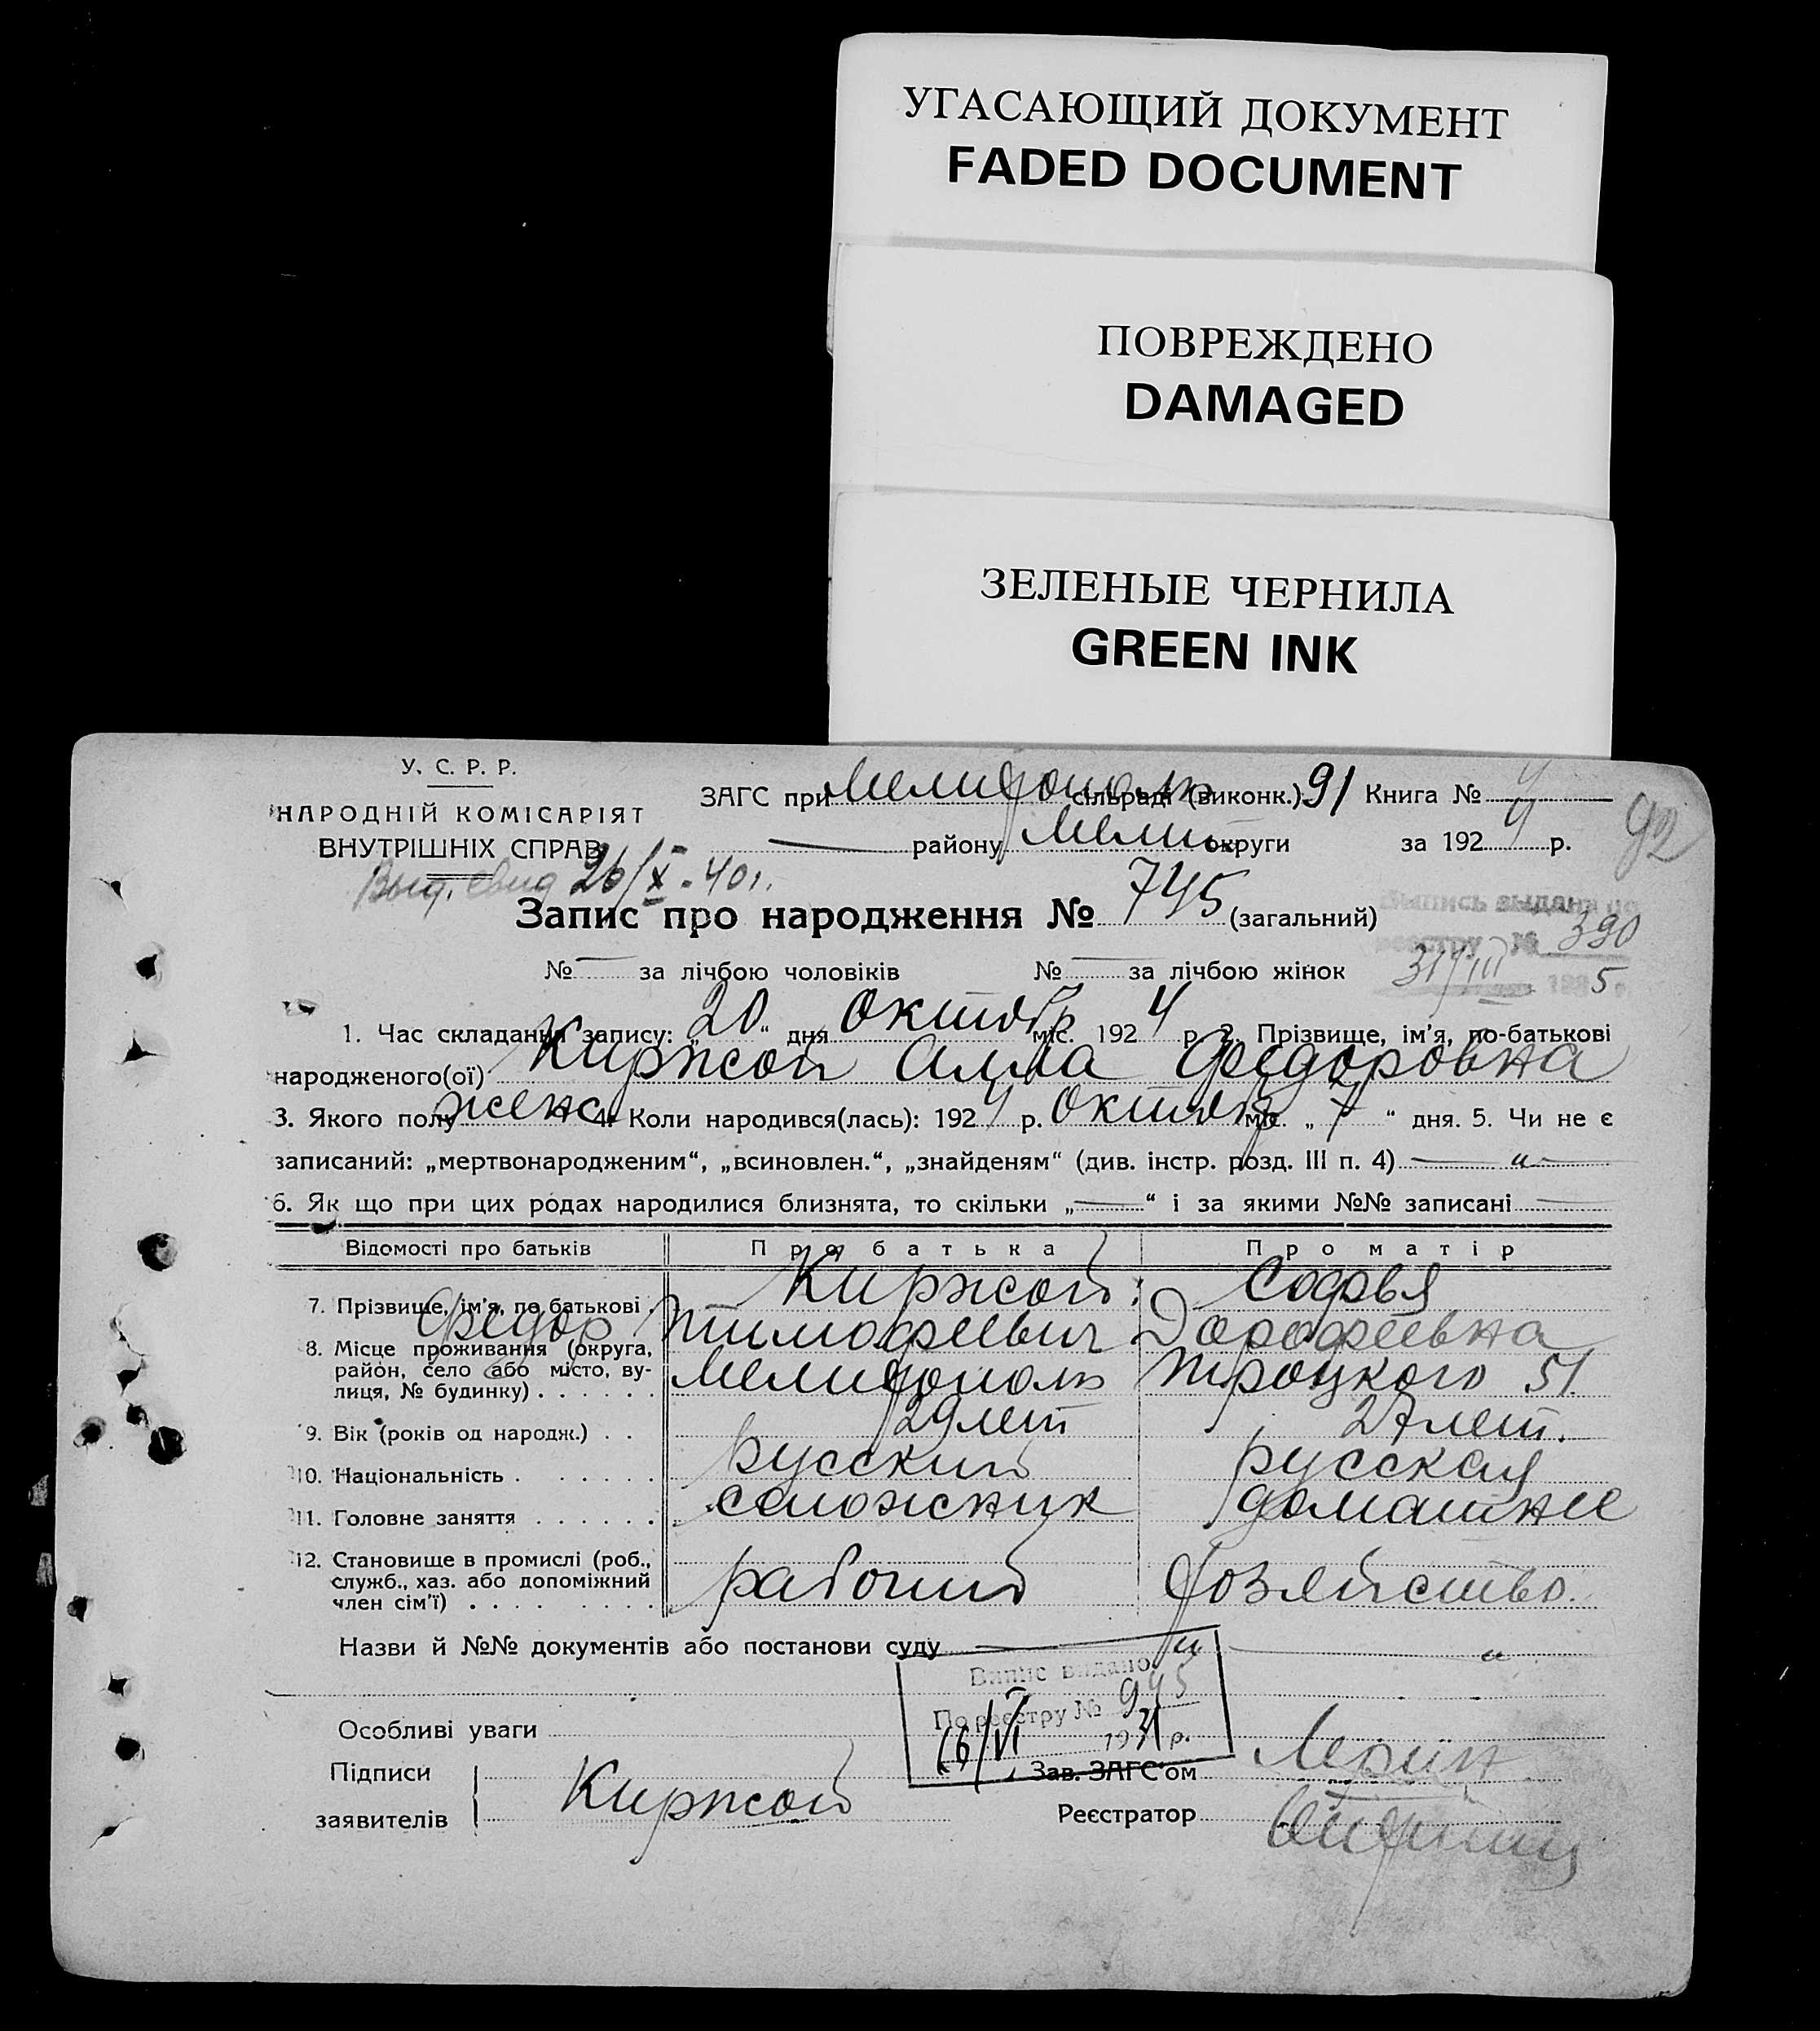 УГАСАЮЩИЙ ДОКУМЕНТ
FADED DOCUMENT
ПОВРЕЖДЕНО
DAMAGED
ЗЕЛЕНЫЕ ЧЕРНИЛА
GREEN INK
У. С. Р. Р.
НАРОДНІЙ КОМІСАРІЯТ
ВНУТРІШНІХ СПРАВ
ЗАГС при Мелитополь сільраді (виконк.) 91 Книга № 4
району Мелит. округи за 1924 р. 92
Выд. свид 26/X - 40 г.
Запис про народження № 745 (загальний)
Выпись выдана по
реестру № 390
31/III 1935
№ — за лічбою чоловіків № — за лічбою жінок
1. Час складання запису: „20“ дня октябр міс. 1924 р. 2. Прізвище, ім’я, по-батькові
народженого(ої) Киржой Алла Федоровна
3. Якого полу жен. 4. Коли народився(лась): 1924 р. октябр міс. „7“ дня. 5. Чи не є
записаний: „мертвонародженим“, „всиновлен.“, „знайденям“ (див. інстр. розд. III п. 4) — „ —
6. Як що при цих родах народилися близнята, то скільки „—“ і за якими №№ записані —
Відомості про батьків Про батька Про матір
7. Прізвище, ім’я, по батькові . Киржой Софья
Федор Тимофеевич Дорофеевна
8. Місце проживання (округа, район, село або місто, вулиця, № будинку) . . . . . . Мелитополь Троцкого 51.
9. Вік (років од народж.) . . 29 лет 27 лет.
10. Національність . . . . . . русский русская
11. Головне заняття . . . . . . сапожник домашнее
12. Становище в промислі (роб., служб., хаз. або допоміжний член сім’ї) . . . . . . . . рабочий хозяйство.
Назви й №№ документів або постанови суду — „ — „
Випис видано
По реєстру № 945
16/VI 1931 р.
Особливі уваги
Підписи
заявителів
Киржой
Зав. ЗАГС’ом
Реєстратор